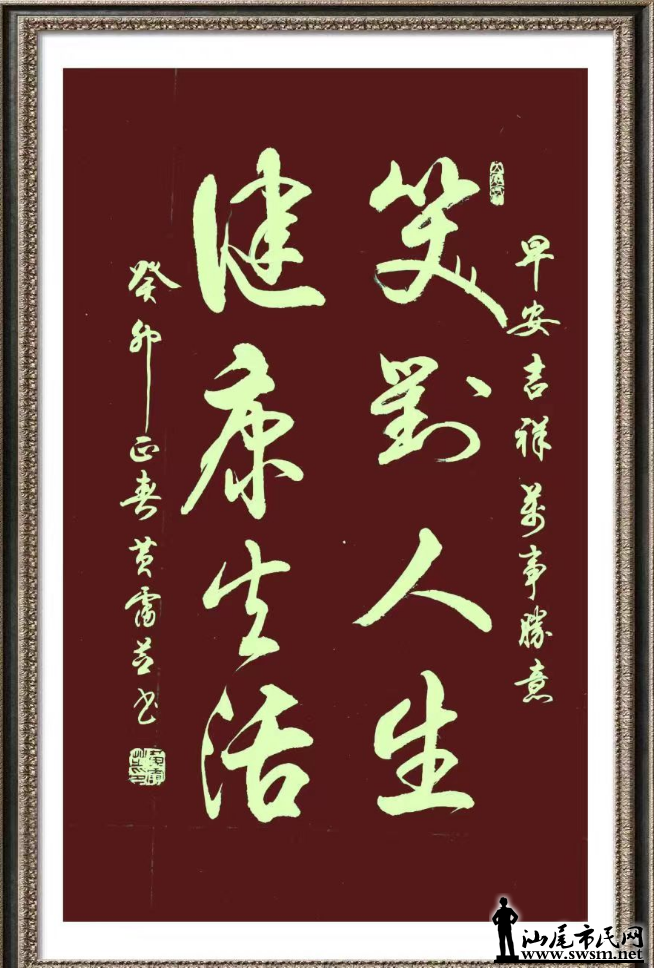 早安吉祥萬事勝意
笑對人生
健康生活
癸卯正春黄雷芒书
汕尾市民网
www.swsm.net